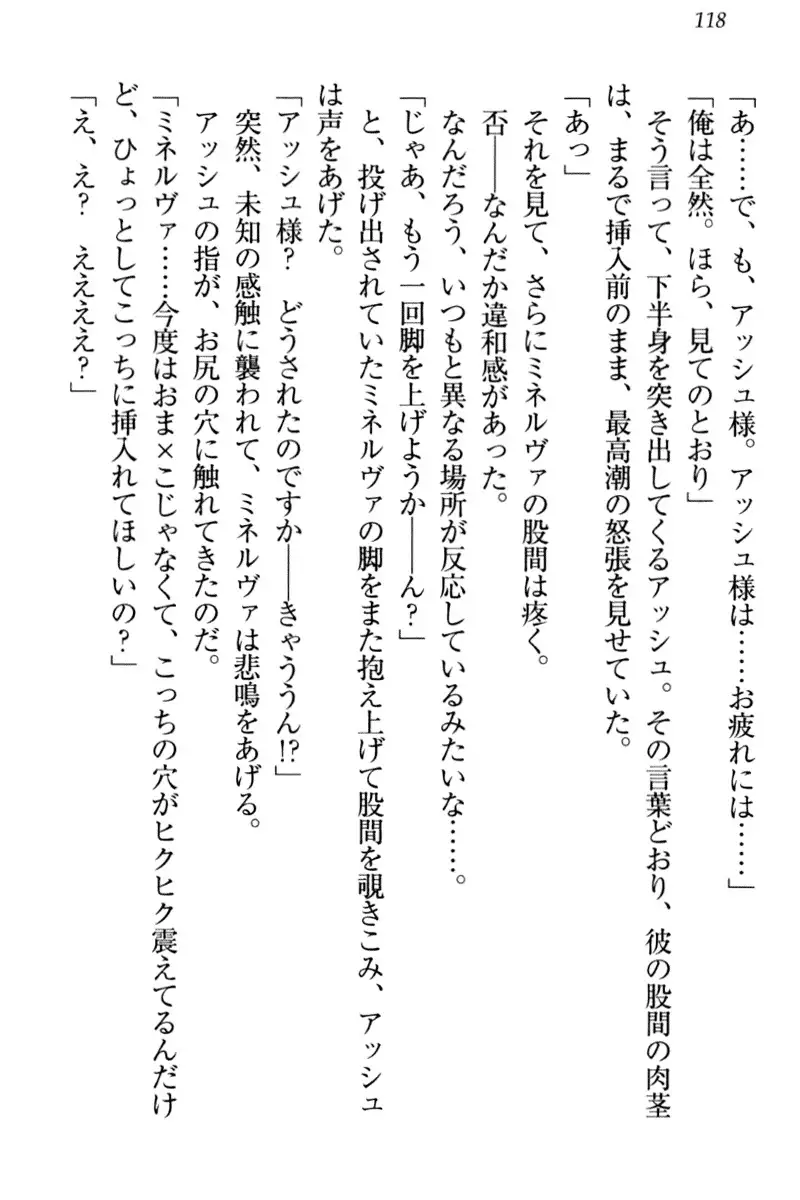 118
「あ……で、も、アッシュ様。アッシュ様は……お疲れには……」
「俺は全然。ほら、見てのとおり」
そう言って、下半身を突き出してくるアッシュ。その言葉どおり、彼の股間の肉茎
は、まるで挿入前のまま、最高潮の怒張を見せていた。
「あっ」
それを見て、さらにミネルヴァの股間は疼く。
否――なんだか違和感があった。
なんだろう、いつもと異なる場所が反応しているみたいな……。
「じゃあ、もう一回脚を上げようか――ん？」
と、投げ出されていたミネルヴァの脚をまた抱え上げて股間を覗きこみ、アッシュ
は声をあげた。
「アッシュ様？　どうされたのですか――きゃううん!?」
突然、未知の感触に襲われて、ミネルヴァは悲鳴をあげる。
アッシュの指が、お尻の穴に触れてきたのだ。
「ミネルヴァ……今度はおま×こじゃなくて、こっちの穴がヒクヒク震えてるんだけ
ど、ひょっとしてこっちに挿入れてほしいの？」
「え、え？　ええええ？」